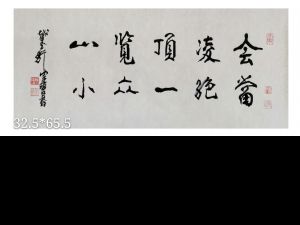 会當
凌絶
頂一
覽众
山小
32.5*65.5